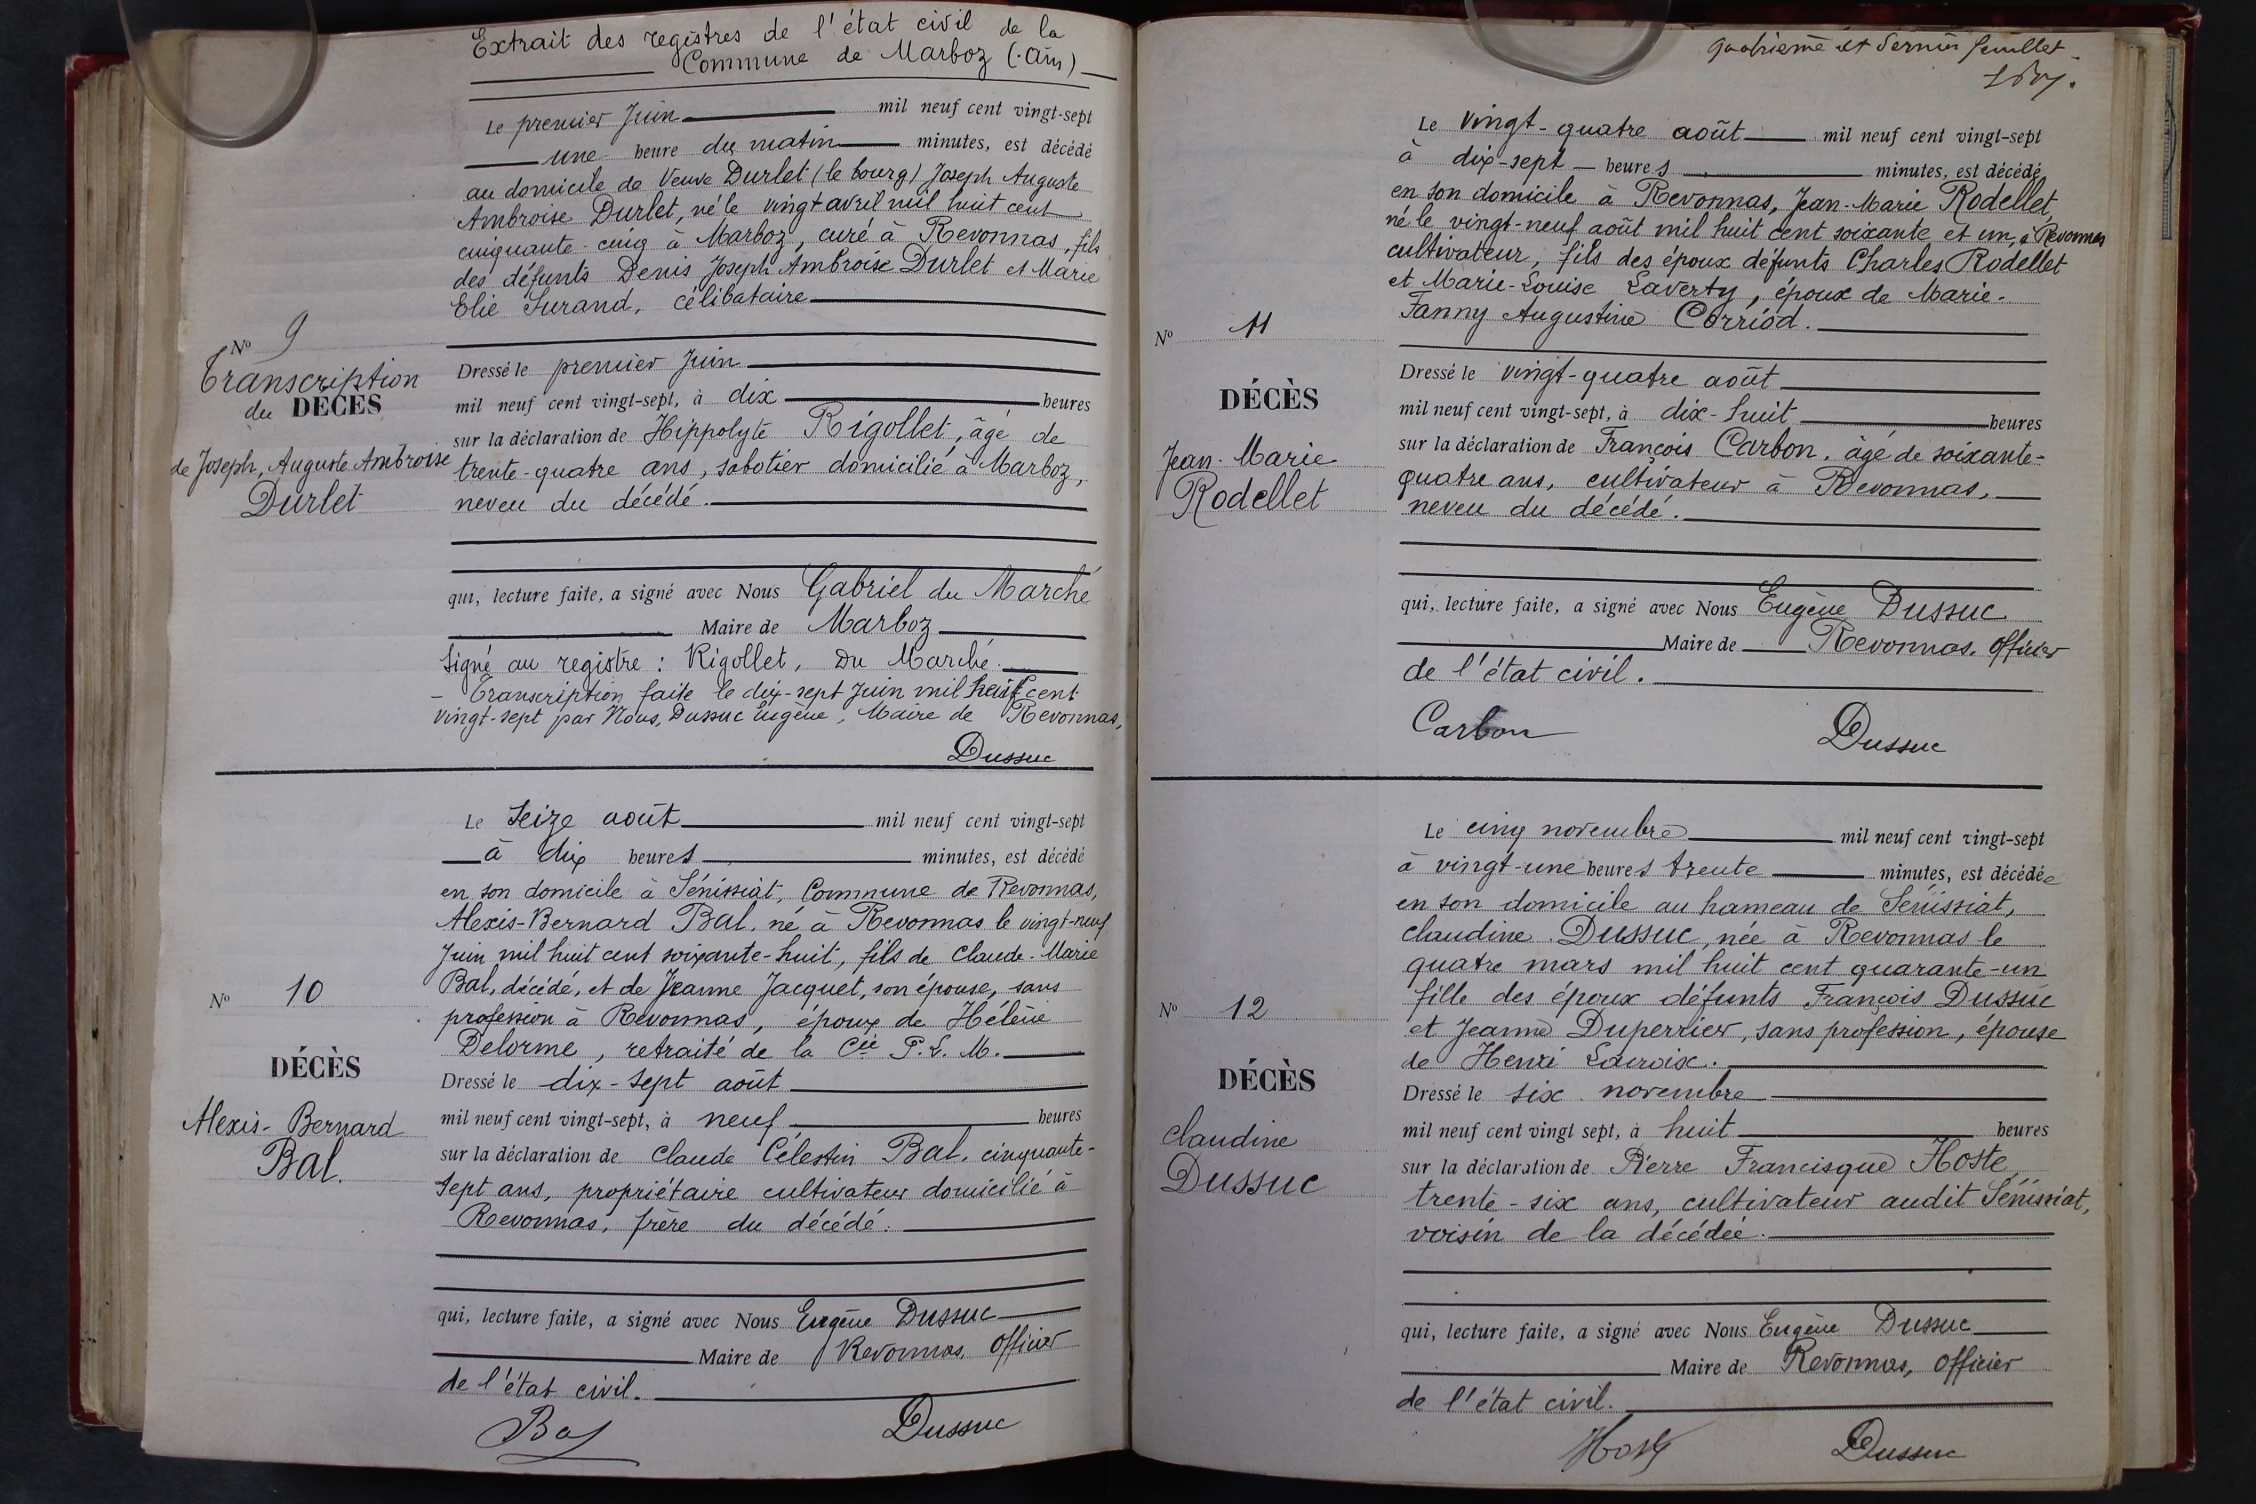 Extrait des registres de l'état civil de la
Commune de Marboz (Ain)
Le premier Juin mil neuf cent vingt-sept
une heure du matin minutes, est décédé
au domicile de Veuve Durlet (le bourg) Joseph Auguste
Ambroise Durlet, né le vingt avril mil huit cent
cinquante-cinq à Marboz, curé à Revonnas, fils
des défunts Denis Joseph Ambroise Durlet et Marie
Elie Surand, célibataire
N° 9
Transcription
du DÉCÈS
de Joseph, Auguste Ambroise
Durlet
Dressé le premier Juin
mil neuf cent vingt-sept, à dix heures
sur la déclaration de Hippolyte Rigollet, âgé de
trente-quatre ans, sabotier domicilié à Marboz,
neveu du décédé.
qui, lecture faite, a signé avec Nous Gabriel du Marché
Maire de Marboz
Signé au registre : Rigollet, Du Marché.
- Transcription faite le dix-sept Juin mil neuf cent
vingt-sept par Nous, Dussuc Eugène, Maire de Revonnas,
Dussuc
Le Seize août mil neuf cent vingt-sept
à dix heures minutes, est décédé
en son domicile à Sénissiat, Commune de Revonnas,
Alexis-Bernard Bal, né à Revonnas le vingt-neuf
Juin mil huit cent soixante-huit, fils de Claude-Marie
Bal, décédé, et de Jeanne Jacquet, son épouse, sans
profession à Revonnas, époux de Hélène
Delorme, retraité de la Cie P.L.M.
N° 10
DÉCÈS
Alexis-Bernard
Bal.
Dressé le dix-sept août
mil neuf cent vingt-sept, à neuf heures
sur la déclaration de Claude Célestin Bal, cinquante-
sept ans, propriétaire cultivateur domicilié à
Revonnas, frère du décédé.
qui, lecture faite, a signé avec Nous Eugène Dussuc
Maire de Revonnas, Officier
de l'état civil.
Bal Dussuc
quatrième et dernier feuillet
Le vingt-quatre août mil neuf cent vingt-sept
à dix-sept heures minutes, est décédé
en son domicile à Revonnas, Jean-Marie Rodellet,
né le vingt-neuf août mil huit cent soixante et un, à Revonnas
cultivateur, fils des époux défunts Charles Rodellet
et Marie-Louise Laverty, époux de Marie-
Fanny Augustine Corriod.
N° 11
DÉCÈS
Jean-Marie
Rodellet
Dressé le vingt-quatre août
mil neuf cent vingt-sept, à dix-huit heures
sur la déclaration de François Carbon, âgé de soixante-
quatre ans, cultivateur à Revonnas,
neveu du décédé.
qui, lecture faite, a signé avec Nous Eugène Dussuc
Maire de Revonnas, Officier
de l'état civil.
Carbon Dussuc
Le cinq novembre mil neuf cent vingt-sept
à vingt-une heures trente minutes, est décédée
en son domicile au hameau de Sénissiat,
Claudine Dussuc, née à Revonnas le
quatre mars mil huit cent quarante-un
fille des époux défunts François Dussuc
et Jeanne Duperrier, sans profession, épouse
de Henri Lacroix.
N° 12
DÉCÈS
Claudine
Dussuc
Dressé le six novembre
mil neuf cent vingt sept, à huit heures
sur la déclaration de Pierre Francisque Hoste,
trente-six ans, cultivateur audit Sénissiat,
voisin de la décédée.
qui, lecture faite, a signé avec Nous Eugène Dussuc
Maire de Revonnas, Officier
de l'état civil.
Hoste Dussuc